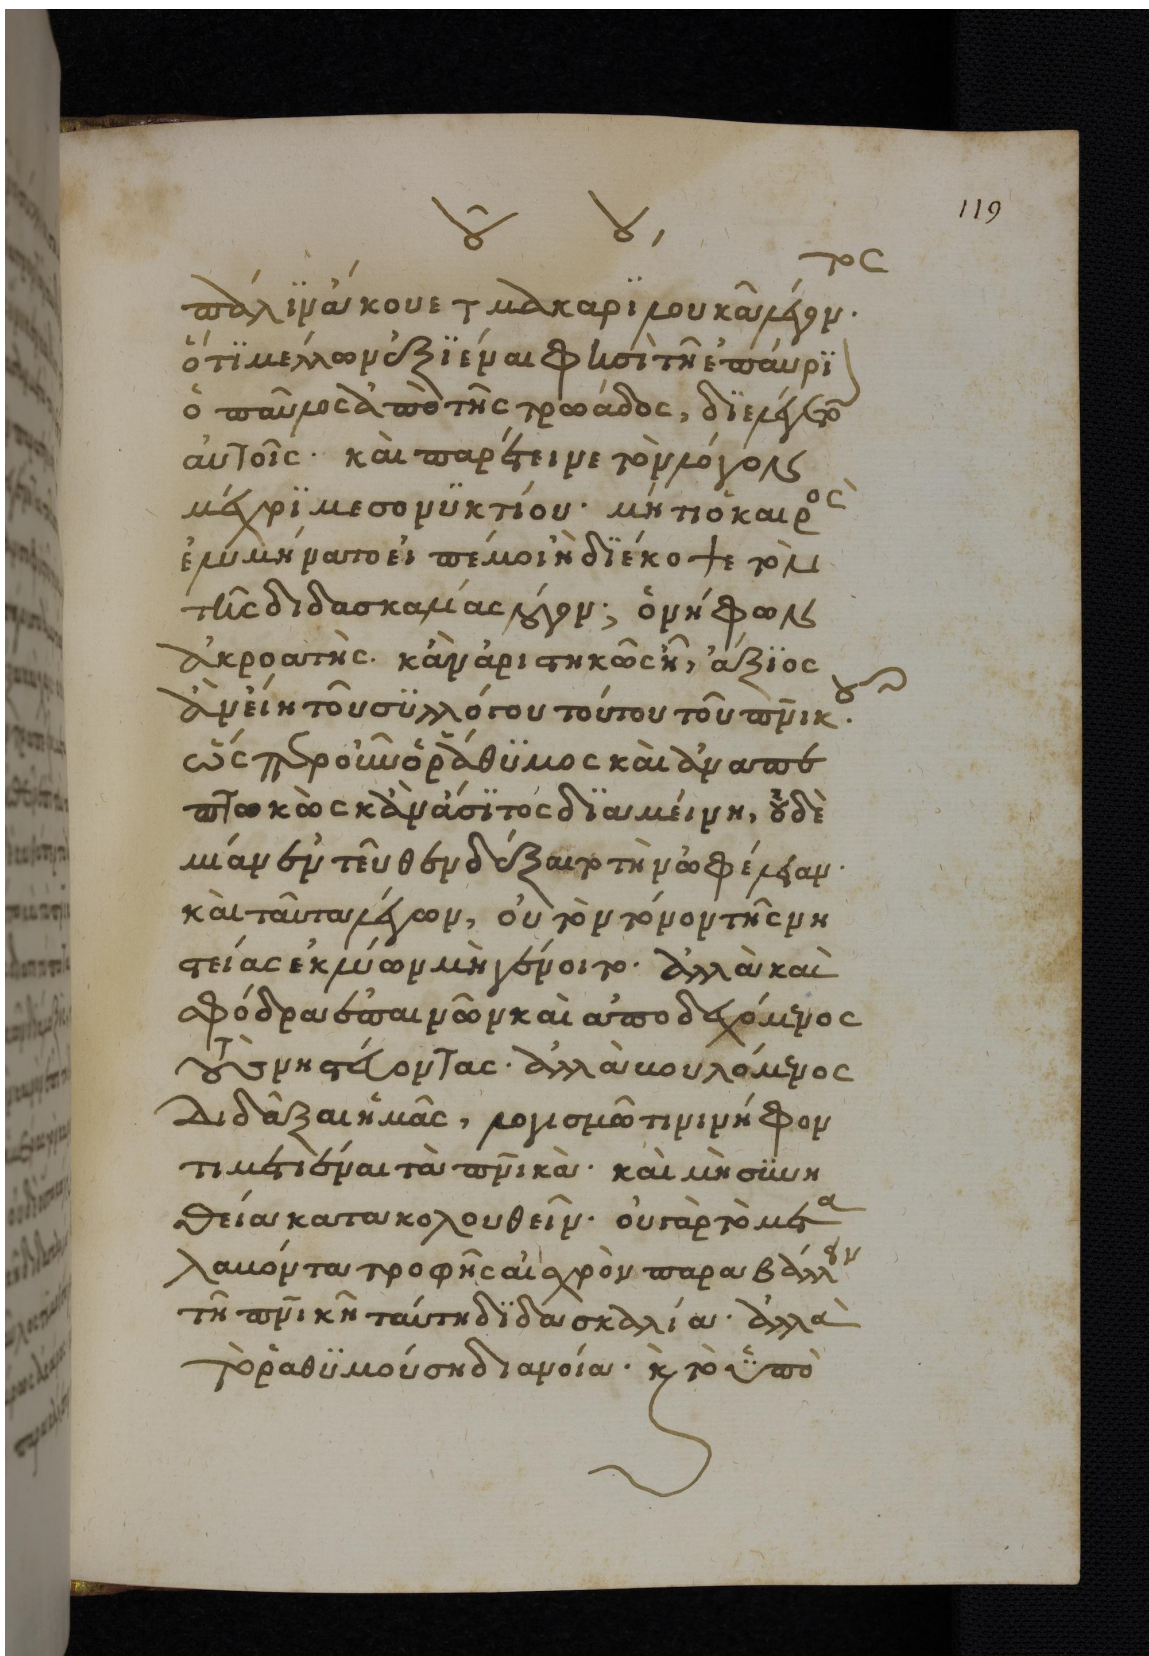 119
πάλιν ἄκουε τ μακαρί λουκᾶ λέγοντος.
ὅτι μέλλων ἐξιέναι φησὶ τῇ ἐπαύριον
ὁ παῦλος ἀπὸ τῆς τρωάδος, διελέγετο
αὐτοῖς. καὶ παρέτεινε τὸν λόγον
μέχρι μεσονυκτίου. μήτι ὁ καιρὸς
ἐλυμήνατο εἰπέ μοι ἢ διέκοψε τὸν
τῆς διδασκαλίας λόγον; ὁ νήφων
ἀκροατὴς. κἂν ἀριστηκὼς ᾖ, ἄξιος
ἂν εἴη τοῦ συλλόγου τούτου τοῦ πνικοῦ.
ὥσπερ οὖν ὁ ῥάθυμος καὶ ἀναπε
πτωκὼς κἂν ἄσιτος διαμείνῃ, οὐδε
μίαν ἐντεῦθεν δέξαιτο τὴν ὠφέλειαν.
καὶ ταῦτα λέγων, οὐ τὸν τόνον τῆς νη
στείας ἐκλύων μὴ γένοιτο. ἀλλὰ καὶ
σφόδρα ἐπαινῶν καὶ ἀποδεχόμενος
τοὺς νηστεύοντας. ἀλλὰ βουλόμενος
διδάξαι ἡμᾶς, λογισμῷ τινι νήφον
τι μετιέναι τὰ πνικὰ. καὶ μὴ συνη
θεία κατακολουθεῖν. οὐ γὰρ τὸ μετα
λαβόντα τροφῆς αἰσχρὸν παραβάλλουν
τῇ πνικῇ ταύτῃ διδασκαλία. ἀλλὰ
τὸ ῥαθυμούσῃ διανοία. κ τὸ ὑπὸ